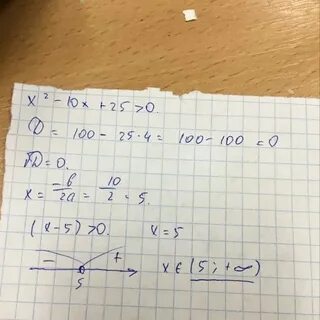 x² - 10x + 25 > 0.
D = 100 - 25·4 = 100 - 100 = 0
√D = 0.
x = -b/2a = 10/2 = 5.
(x-5) > 0. x = 5
- +
5
x ∈ (5; +∞)